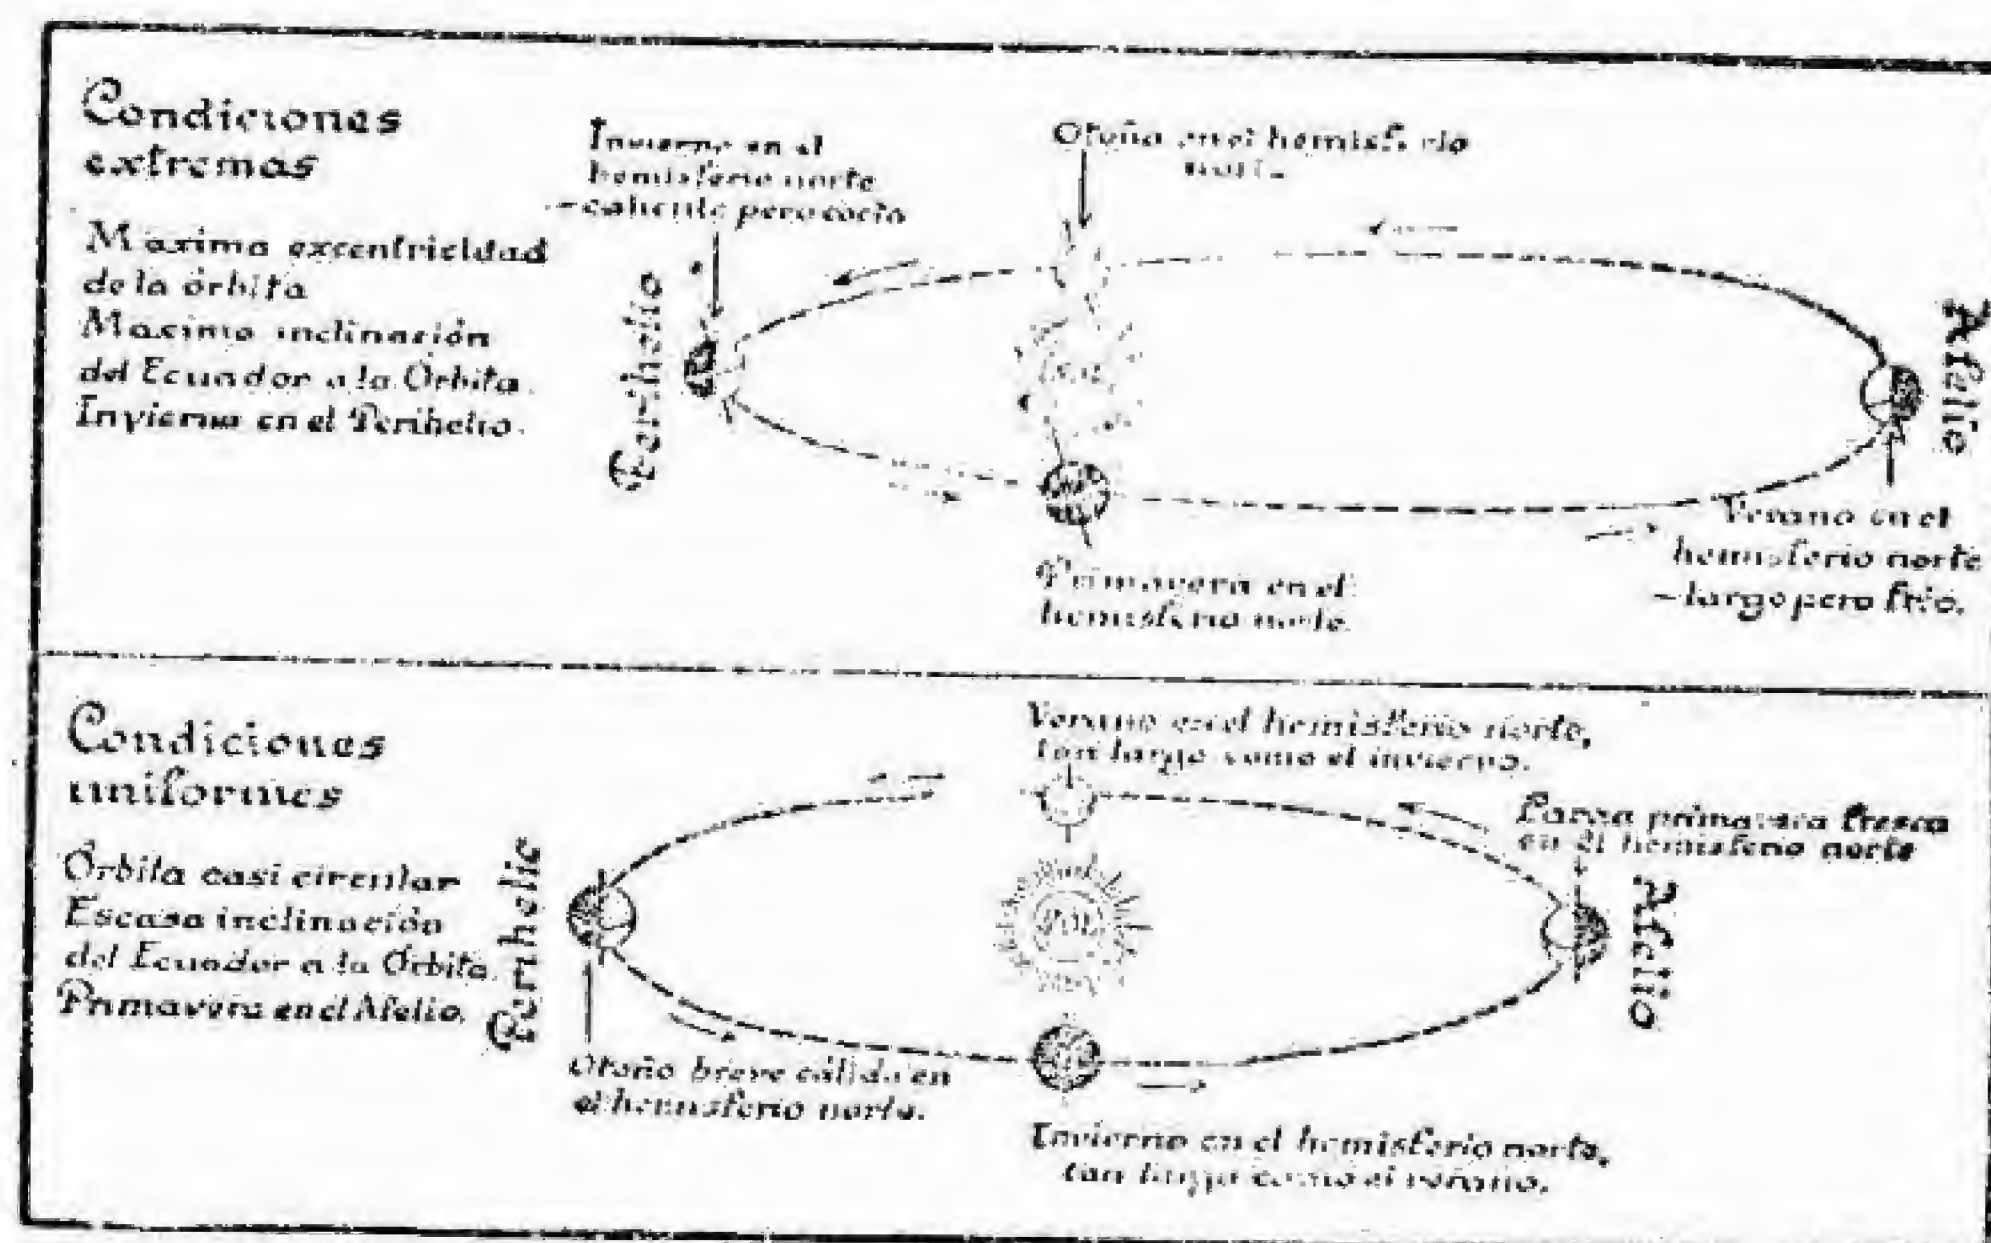 Condiciones
extremas
Maxima excentricidad
de la órbita
Maxima inclinación
del Ecuador a la Órbita.
Invierno en el Perihelio.
Invierno en el
hemisferio norte
- caliente pero corto
Otoño en el hemisferio
norte
Perihelio
SOL
Afelio
Primavera en el
hemisferio norte.
Verano en el
hemisferio norte
- largo pero frío.
Condiciones
uniformes
Órbita casi circular
Escasa inclinación
del Ecuador a la Órbita.
Primavera en el Afelio.
Verano en el hemisferio norte,
tan largo como el invierno.
Larga primavera fresca
en el hemisferio norte
Perihelio
SOL
Afelio
Otoño breve cálido en
el hemisferio norte.
Invierno en el hemisferio norte,
tan largo como el verano.